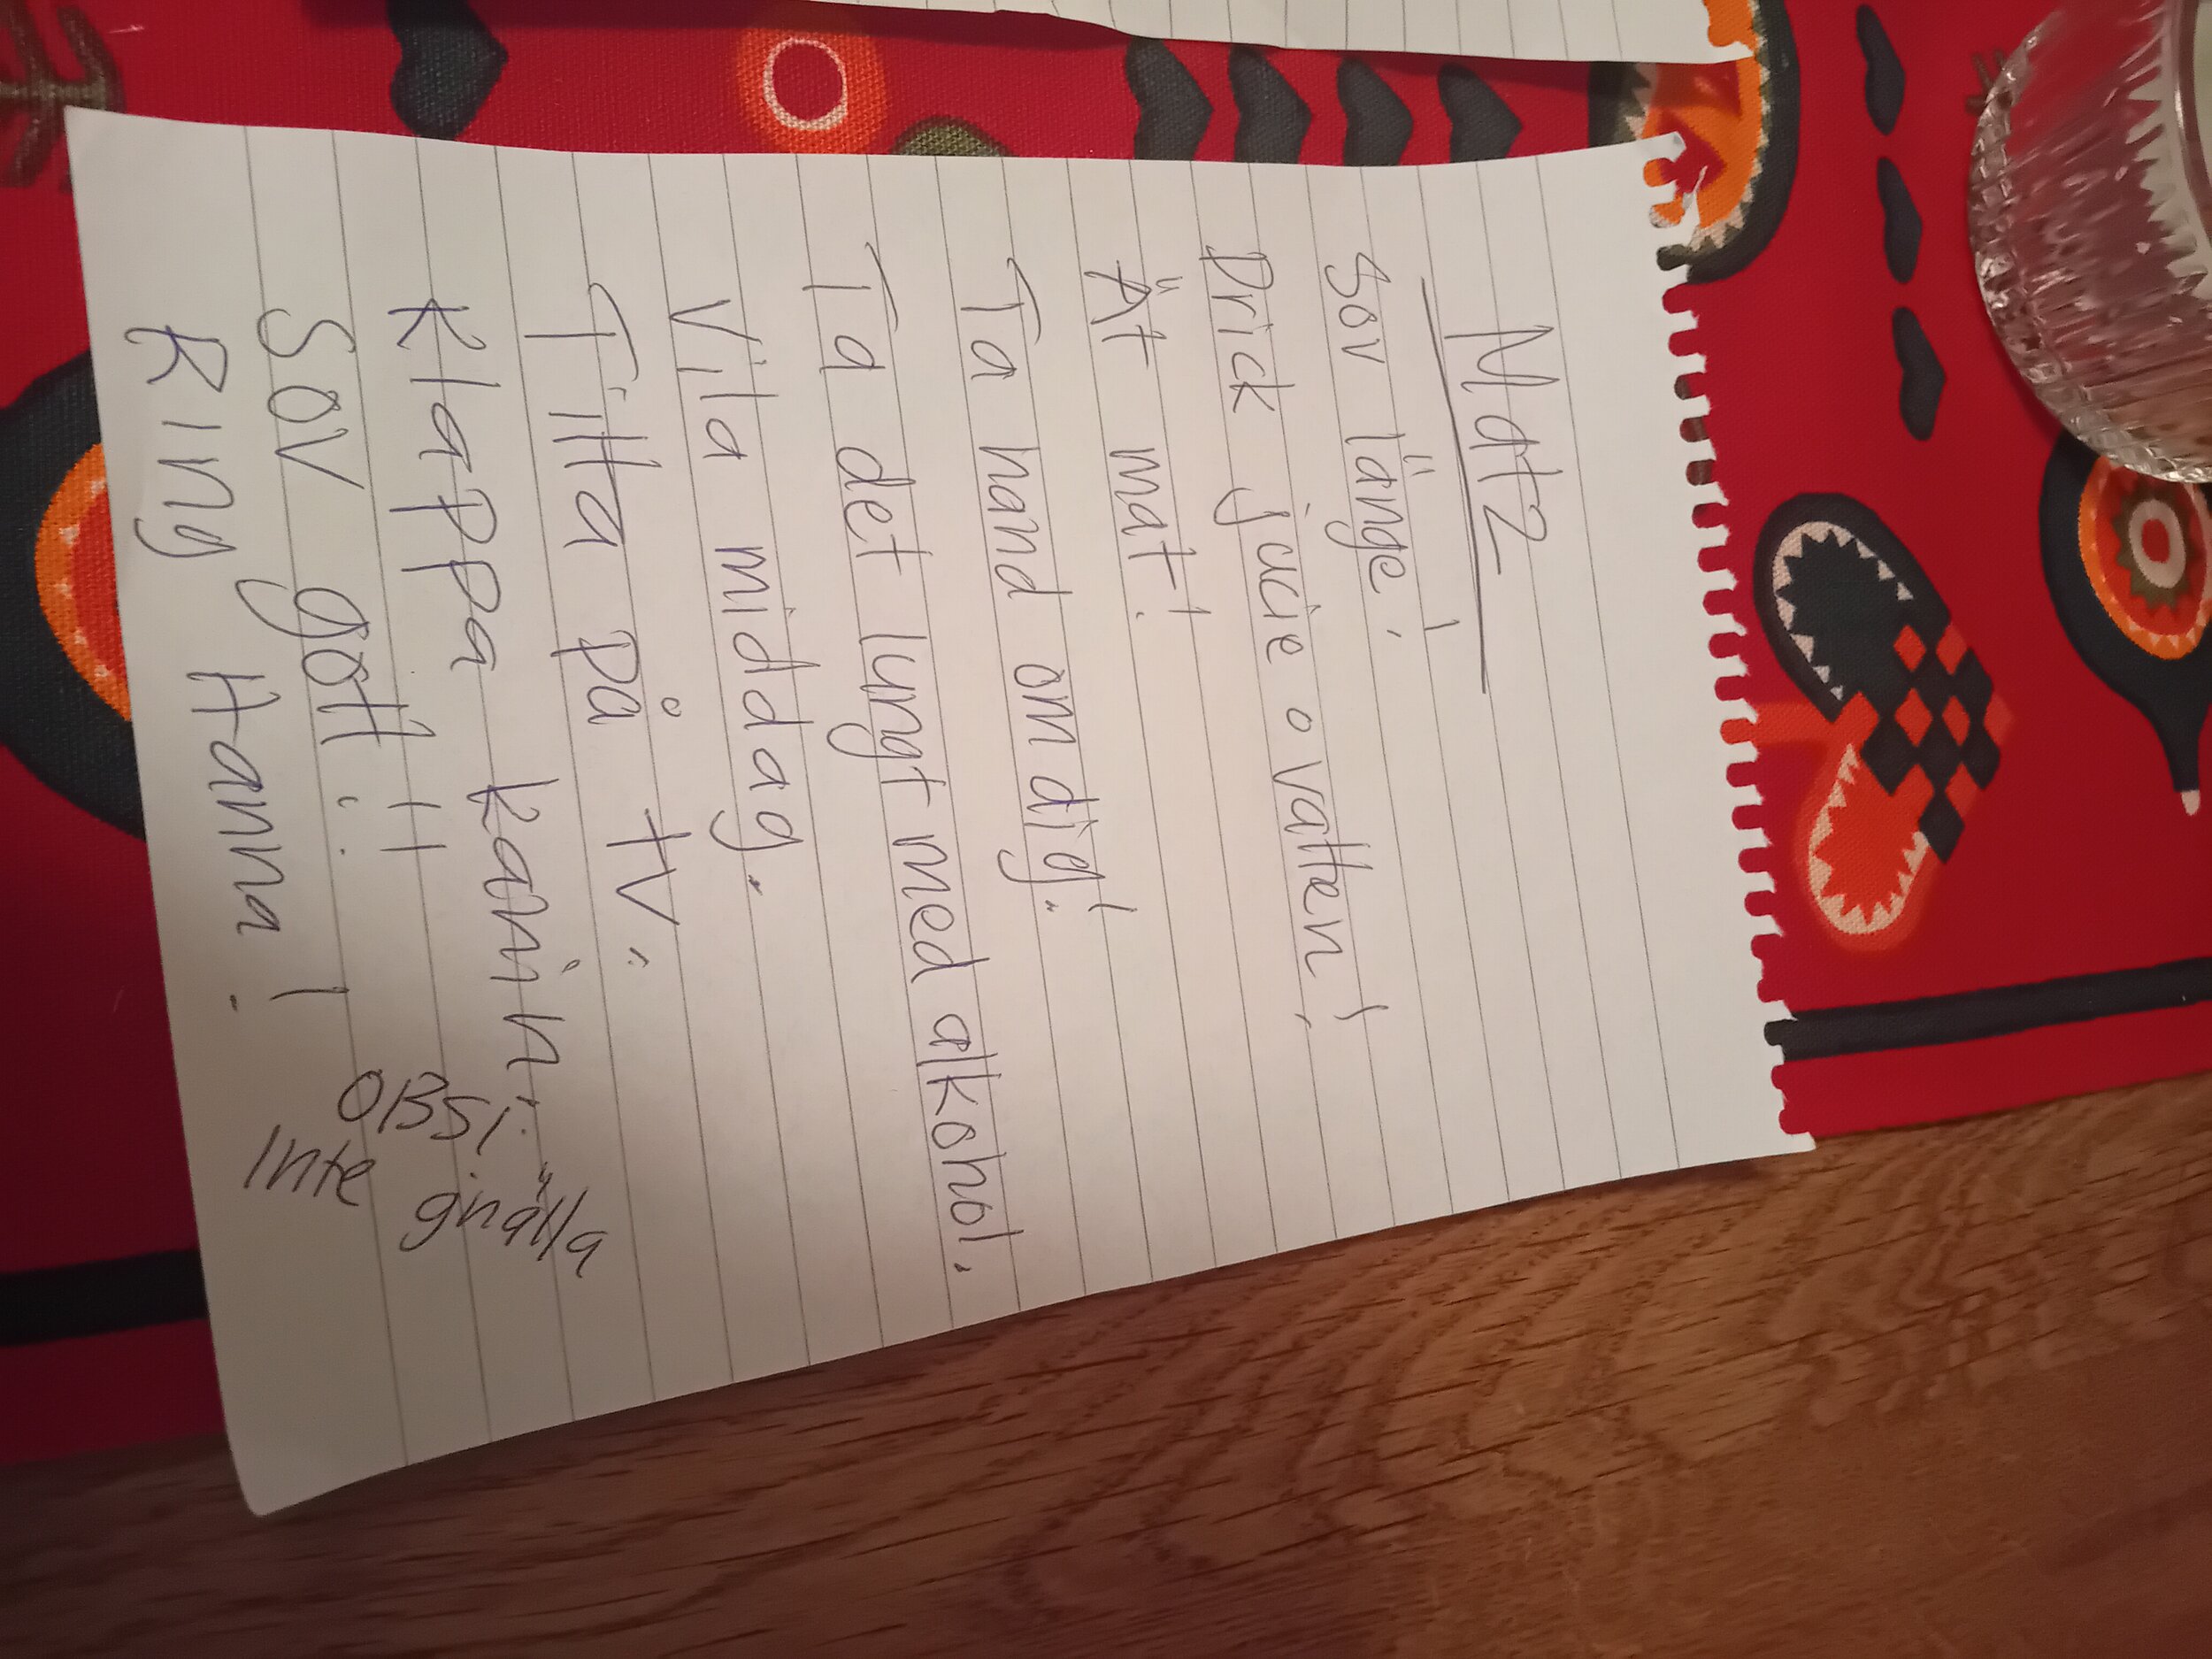 Matz
Sov länge!
Drick jucie o vatten!
Ät mat!
Ta hand om dig!
Ta det lungt med alkohol.
Vila middag.
Titta på tv.
Klappa kanin.
Sov gott!!
Ring Hanna!
OBS!
Inte gnälla